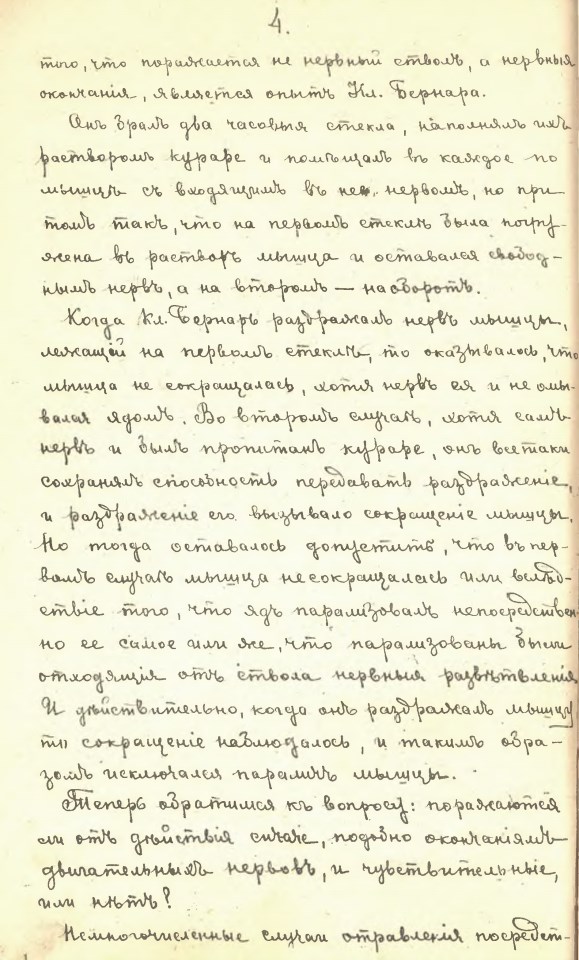 4.
того, что поражается не нервный стволъ, а нервныя
окончанія, является опытъ Кл. Бернара.
Онъ бралъ два часовыя стекла, наполнялъ ихъ
растворомъ кураре и помѣщалъ въ каждое по
мышцѣ съ входящимъ въ нее нервомъ, но при
томъ такъ, что на первомъ стеклѣ была погру-
жена въ растворъ мышца и оставался свобод-
нымъ нервъ, а на второмъ — наоборотъ.
Когда Кл. Бернаръ раздражалъ нервъ мышцы,
лежащей на первомъ стеклѣ, то оказывалось, что
мышца не сокращалась, хотя нервъ ея и не омы-
вался ядомъ. Во второмъ случаѣ, хотя самъ
нервъ и былъ пропитанъ кураре, онъ всетаки
сохранялъ способность передавать раздраженіе,
и раздраженіе его вызывало сокращеніе мышцы.
Но тогда оставалось допустить, что въ пер-
вомъ случаѣ мышца не сокращалась или вслѣд-
ствіе того, что ядъ парализовалъ непосредствен-
но ее самое или же, что парализованы были
отходящія отъ ствола нервныя развѣтвленія.
И дѣйствительно, когда онъ раздражалъ мышцу
то сокращеніе наблюдалось, и такимъ обра-
зомъ исключался параличъ мышцы.
Теперь обратимся къ вопросу: поражаются
ли отъ дѣйствія curare, подобно окончаніямъ
двигательныхъ нервовъ, и чувствительные,
или нѣтъ?
Немногочисленные случаи отравленія посредст-